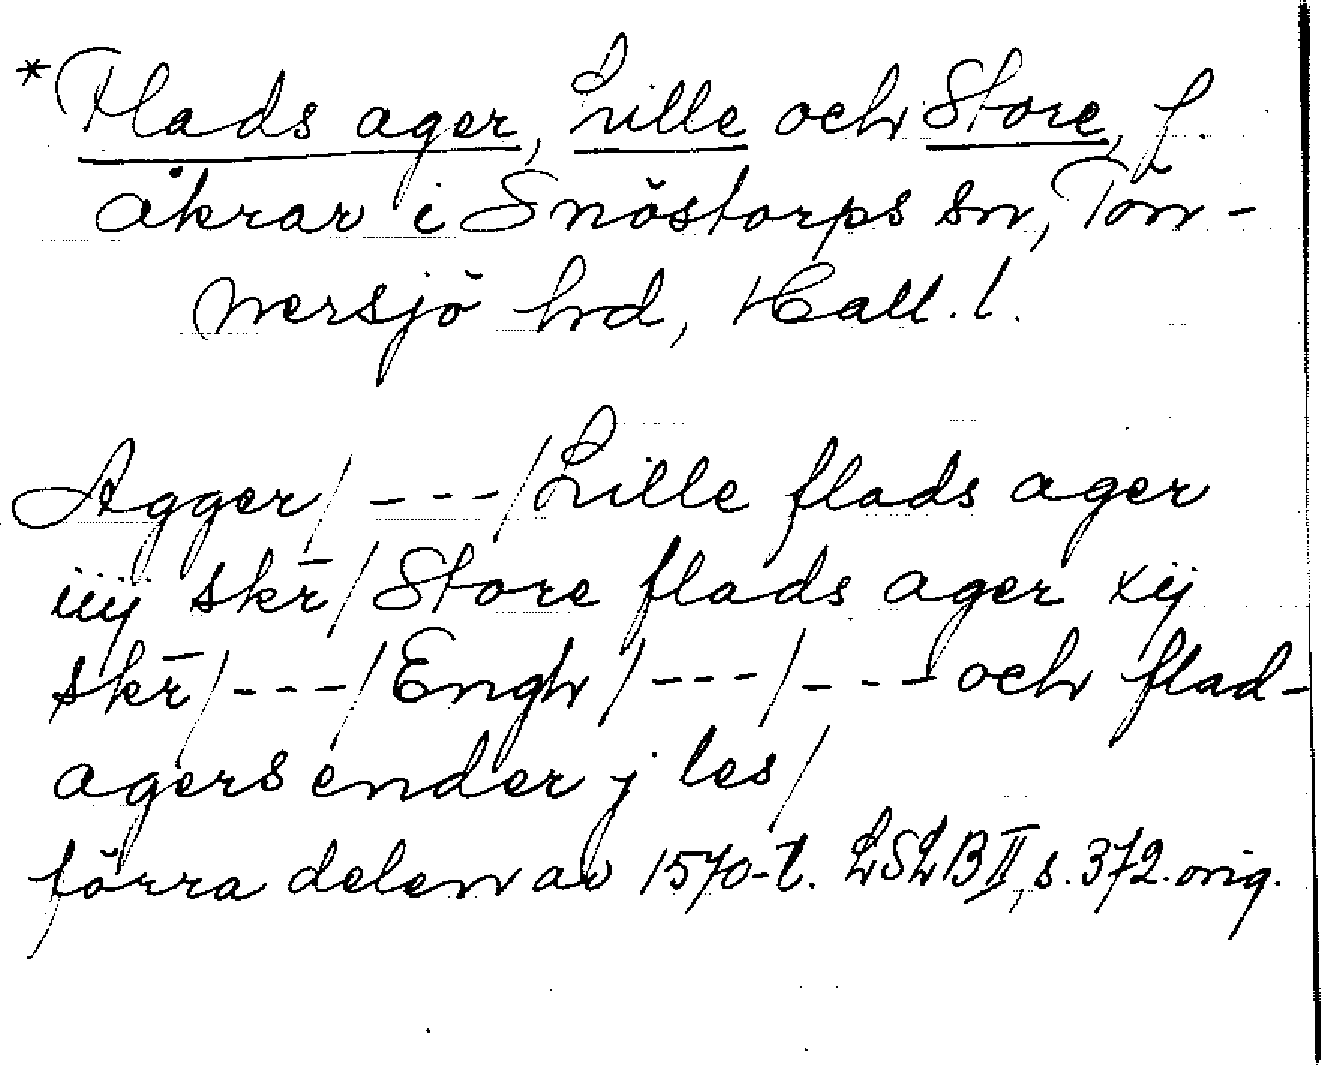 *Flads ager, Lille och Store, f.
åkrar i Snöstorps sn, Tön-
nersjö hd, Hall. l.
Agger / - - - / Lille flads ager
iiij skr̄ / Store flads ager xij
skr̄ / - - - / Engh / - - - / - - - och flad-
agers ender j les /
förra delen av 1570-t. LSLB II, s. 372. orig.